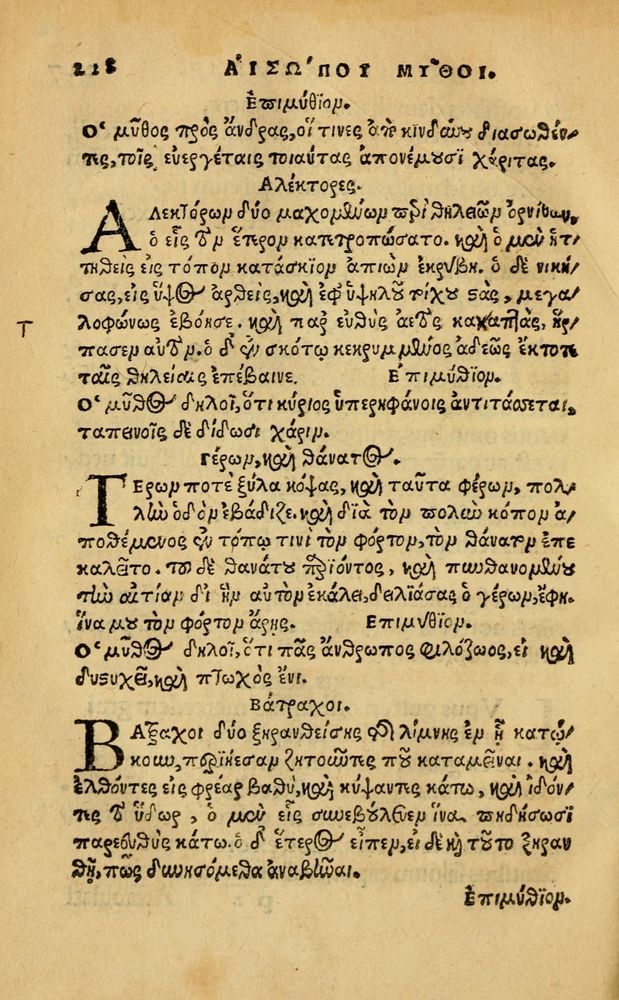 228 ΑἸΣΩ´ΠΟΥ ΜΥ͂ΘΟΙ.
Ἐπιμύθιον.
Ο῾ μῦθος πρὸς ἄνδρας, οἵ τινες ἀπὸ κινδύνου διασωθέν/
τες, τοῖς εὐεργέταις τοιαύτας ἀπονέμουσι χάριτας.
Ἀλέκτορες.
ΑΛεκτόρων δύο μαχομένων περὶ θηλειῶν ὀρνίθων,
ὁ εἷς τὸν ἕτερον κατετροπώσατο. καὶ ὁ μὲν ἡτ/
τηθεὶς εἰς τόπον κατάσκιον ἀπιὼν ἐκρύβη. ὁ δὲ νική/
σας, εἰς ὕψος ἀρθεὶς, καὶ ἐφ' ὑψηλοῦ τοίχου στὰς, μεγα/
λοφώνως ἐβόησε. καὶ παρ' εὐθὺς ἀετὸς καταπτὰς, ἥρ/
τ
πασεν αὐτόν. ὁ δ' ἐν σκότῳ κεκρυμμένος ἀδεῶς ἔκτοτε
ταῖς θηλείαις ἐπέβαινε. Ἐπιμύθιον.
Ο῾ μῦθος δηλοῖ, ὅτι κύριος ὑπερηφάνοις ἀντιτάσσεται,
ταπεινοῖς δὲ δίδωσι χάριν.
Γέρων, καὶ θάνατος.
ΓΕρων ποτὲ ξύλα κόψας, καὶ ταῦτα φέρων, πολ/
λὴν ὁδὸν ἐβάδιζε. καὶ διὰ τὸν πολὺν κόπον ἀ/
ποθέμενος ἐν τόπῳ τινὶ τὸν φόρτον, τὸν θάνατον ἐπε
καλεῖτο. τοῦ δὲ θανάτου παριόντος, καὶ πυνθανομένου
τὴν αἰτίαν δι' ἣν αὐτὸν ἐκάλει, δειλιάσας ὁ γέρων, ἔφη.
ἵνα μου τὸν φόρτον ἄρῃς. Ἐπιμύθιον.
Ο῾ μῦθος δηλοῖ, ὅτι πᾶς ἄνθρωπος φιλόζωος, εἰ καὶ
δυστυχεῖ, καὶ πτωχὸς ἔνι.
Βάτραχοι.
ΒΑτραχοι δύο ξηρανθείσης τῆς λίμνης ἐν ᾗ κατῴ/
κουν, περιῄεσαν ζητοῦντες ποῦ καταμεῖναι. καὶ
ἐλθόντες εἰς φρέαρ βαθὺ, καὶ κύψαντες κάτω, καὶ ἰδόν/
τες τὸ ὕδωρ, ὁ μὲν εἷς συνεβούλευεν ἵνα πηδήσωσι
παρευθὺς κάτω. ὁ δ' ἕτερος εἶπεν, εἰ δὲ καὶ τοῦτο ξηραν
θῇ, πῶς δυνησόμεθα ἀναβῆναι.
Ἐπιμύθιον.